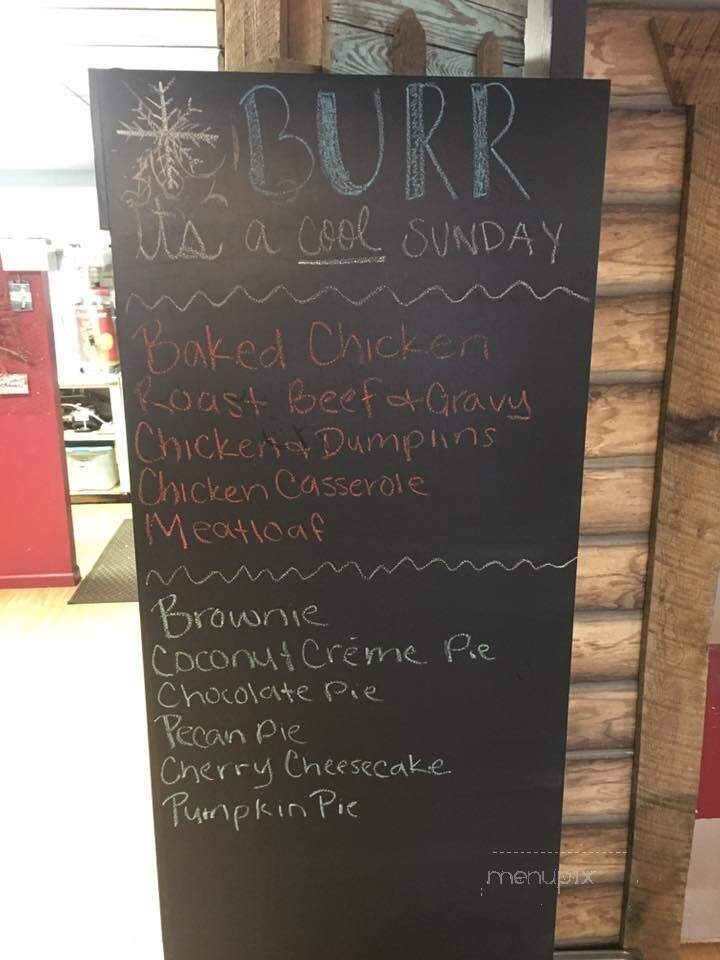 BURR
it's a cool SUNDAY
Baked Chicken
Roast Beef & Gravy
Chicken & Dumplins
Chicken Casserole
Meatloaf
Brownie
Coconut Créme Pie
Chocolate Pie
Pecan Pie
Cherry Cheesecake
Pumpkin Pie
menupix